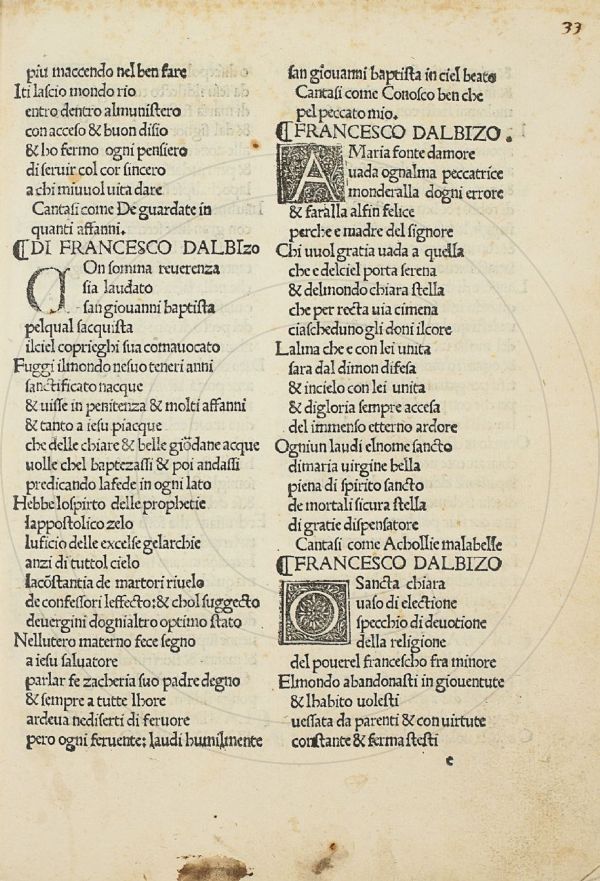 33
piu maccendo nel ben fare
Iti lascio mondo rio
entro dentro almunistero
con acceso & buon disio
& ho fermo ogni pensiero
di seruir col cor sincero
a chi miuuol uita dare
Cantasi come De guardate in
quanti affanni.
⸿DI FRANCESCO DALBIzo
COn somma reuerenza
sia laudato
san giouanni baptista
pelqual sacquista
ilciel coprieghi sua comauocato
Fuggi ilmondo nesuo teneri anni
sanctificato nacque
& uisse in penitenza & molti affanni
& tanto a iesu piacque
che delle chiare & belle giōdane acque
uolle chel baptezassi & poi andassi
predicando lafede in ogni lato
Hebbe lospirto delle prophetie
lappostolico zelo
luficio delle excelse gelarchie
anzi di tuttol cielo
lacōstantia de martori riuelo
de confessori leffecto: & chol suggecto
deuergini dognialtro optimo stato
Nellutero materno fece segno
a iesu saluatore
parlar fe zacheria suo padre degno
& sempre a tutte lhore
ardeua nediserti di feruore
pero ogni feruente: laudi humilmente
san giouanni baptista in ciel beato
Cantasi come Conosco ben che
pel peccato mio.
⸿FRANCESCO DALBIZO.
A Maria fonte damore
uada ognalma peccatrice
monderalla dogni errore
& faralla alfin felice
perche e madre del signore
Chi uuol gratia uada a quella
che e delciel porta serena
& delmondo chiara stella
che per recta uia cimena
ciascheduno gli doni ilcore
Lalma che e con lei unita
sara dal dimon difesa
& incielo con lei unita
& digloria sempre accesa
del immenso etterno ardore
Ogniun laudi elnome sancto
dimaria uirgine bella
piena di spirito sancto
de mortali sicura stella
di gratie dispensatore
Cantasi come Achollie malabelle
⸿FRANCESCO DALBIZO
O Sancta chiara
uaso di electione
specchio di deuotione
della religione
del pouerel francescho fra minore
Elmondo abandonasti in giouentute
& lhabito uolesti
uessata da parenti & con uirtute
constante & ferma stesti
e